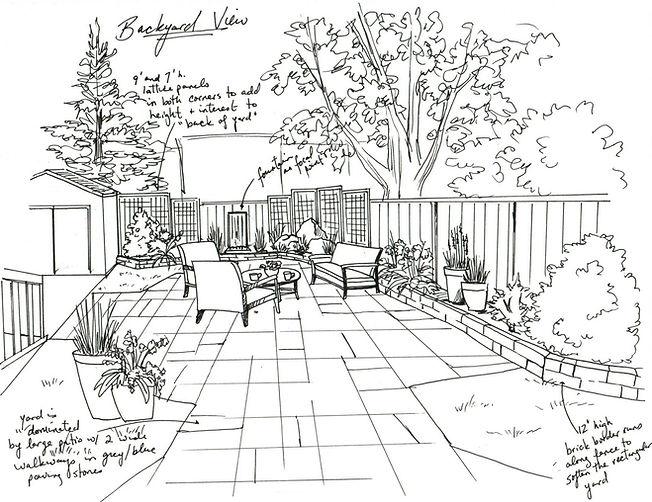 Backyard View
9' and 7' h.
lattice panels
in both corners to add
height + interest to
"back of yard"
fountain
as focal
point
yard is
"dominated
by large patio w/ 2 wide
walkways in grey/blue
paving stones
12" high
brick border runs
along fence to
soften the rectangular
yard